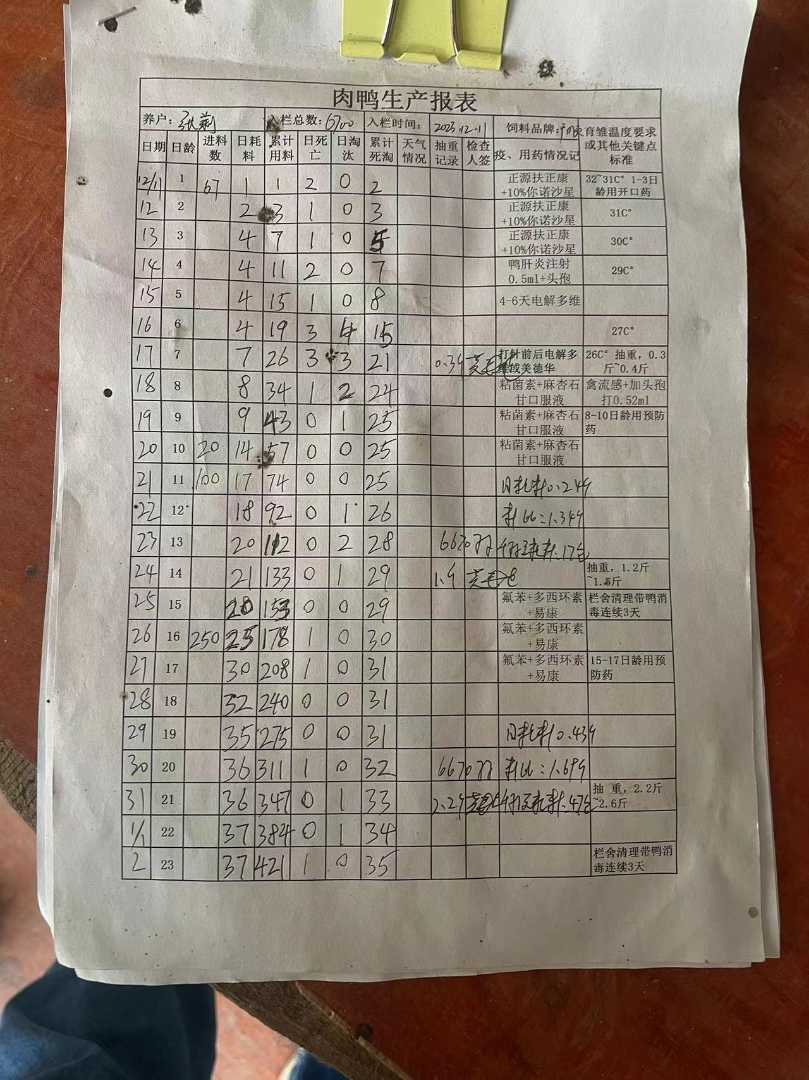 肉鸭生产报表
养户: 入栏总数:6700 入栏时间: 2023.12-11 饲料品牌: 育雏温度要求或其他关键点标准
日期 日龄 进料数 日耗料 累计用料 日死亡 日淘汰 累计死淘 天气情况 抽重记录 检查人签 疫、用药情况记
12/11 1 67 1 1 2 0 2 正源扶正康+10%你诺沙星 32~31C° 1-3日龄用开口药
12 2 2 3 1 0 3 正源扶正康+10%你诺沙星 31C°
13 3 4 7 1 0 5 正源扶正康+10%你诺沙星 30C°
14 4 4 11 2 0 7 鸭肝炎注射0.5ml+头孢 29C°
15 5 4 15 1 0 8 4-6天电解多维
16 6 4 19 3 4 15 27C°
17 7 7 26 3 3 21 0.39 打针前后电解多维或美德华 26C° 抽重,0.3斤~0.4斤
18 8 8 34 1 2 24 粘菌素+麻杏石甘口服液 禽流感+加头孢打0.52ml
19 9 9 43 0 1 25 粘菌素+麻杏石甘口服液 8-10日龄用预防药
20 10 20 14 57 0 0 25 粘菌素+麻杏石甘口服液
21 11 100 17 74 0 0 25 日耗料0.249
22 12 18 92 0 1 26 料比:1.349
23 13 20 112 0 2 28 6670羽
24 14 21 133 0 1 29 1.9 抽重,1.2斤~1.5斤
25 15 20 153 0 0 29 氟苯+多西环素+易康 栏舍清理带鸭消毒连续3天
26 16 250 25 178 1 0 30 氟苯+多西环素+易康
27 17 30 208 1 0 31 氟苯+多西环素+易康 15-17日龄用预防药
28 18 32 240 0 0 31
29 19 35 275 0 0 31 日耗料0.439
30 20 36 311 1 0 32 6670羽 料比:1.689
31 21 36 347 0 1 33 2.29 抽重,2.2斤~2.6斤
1/1 22 37 384 0 1 34
2 23 37 421 1 0 35 栏舍清理带鸭消毒连续3天